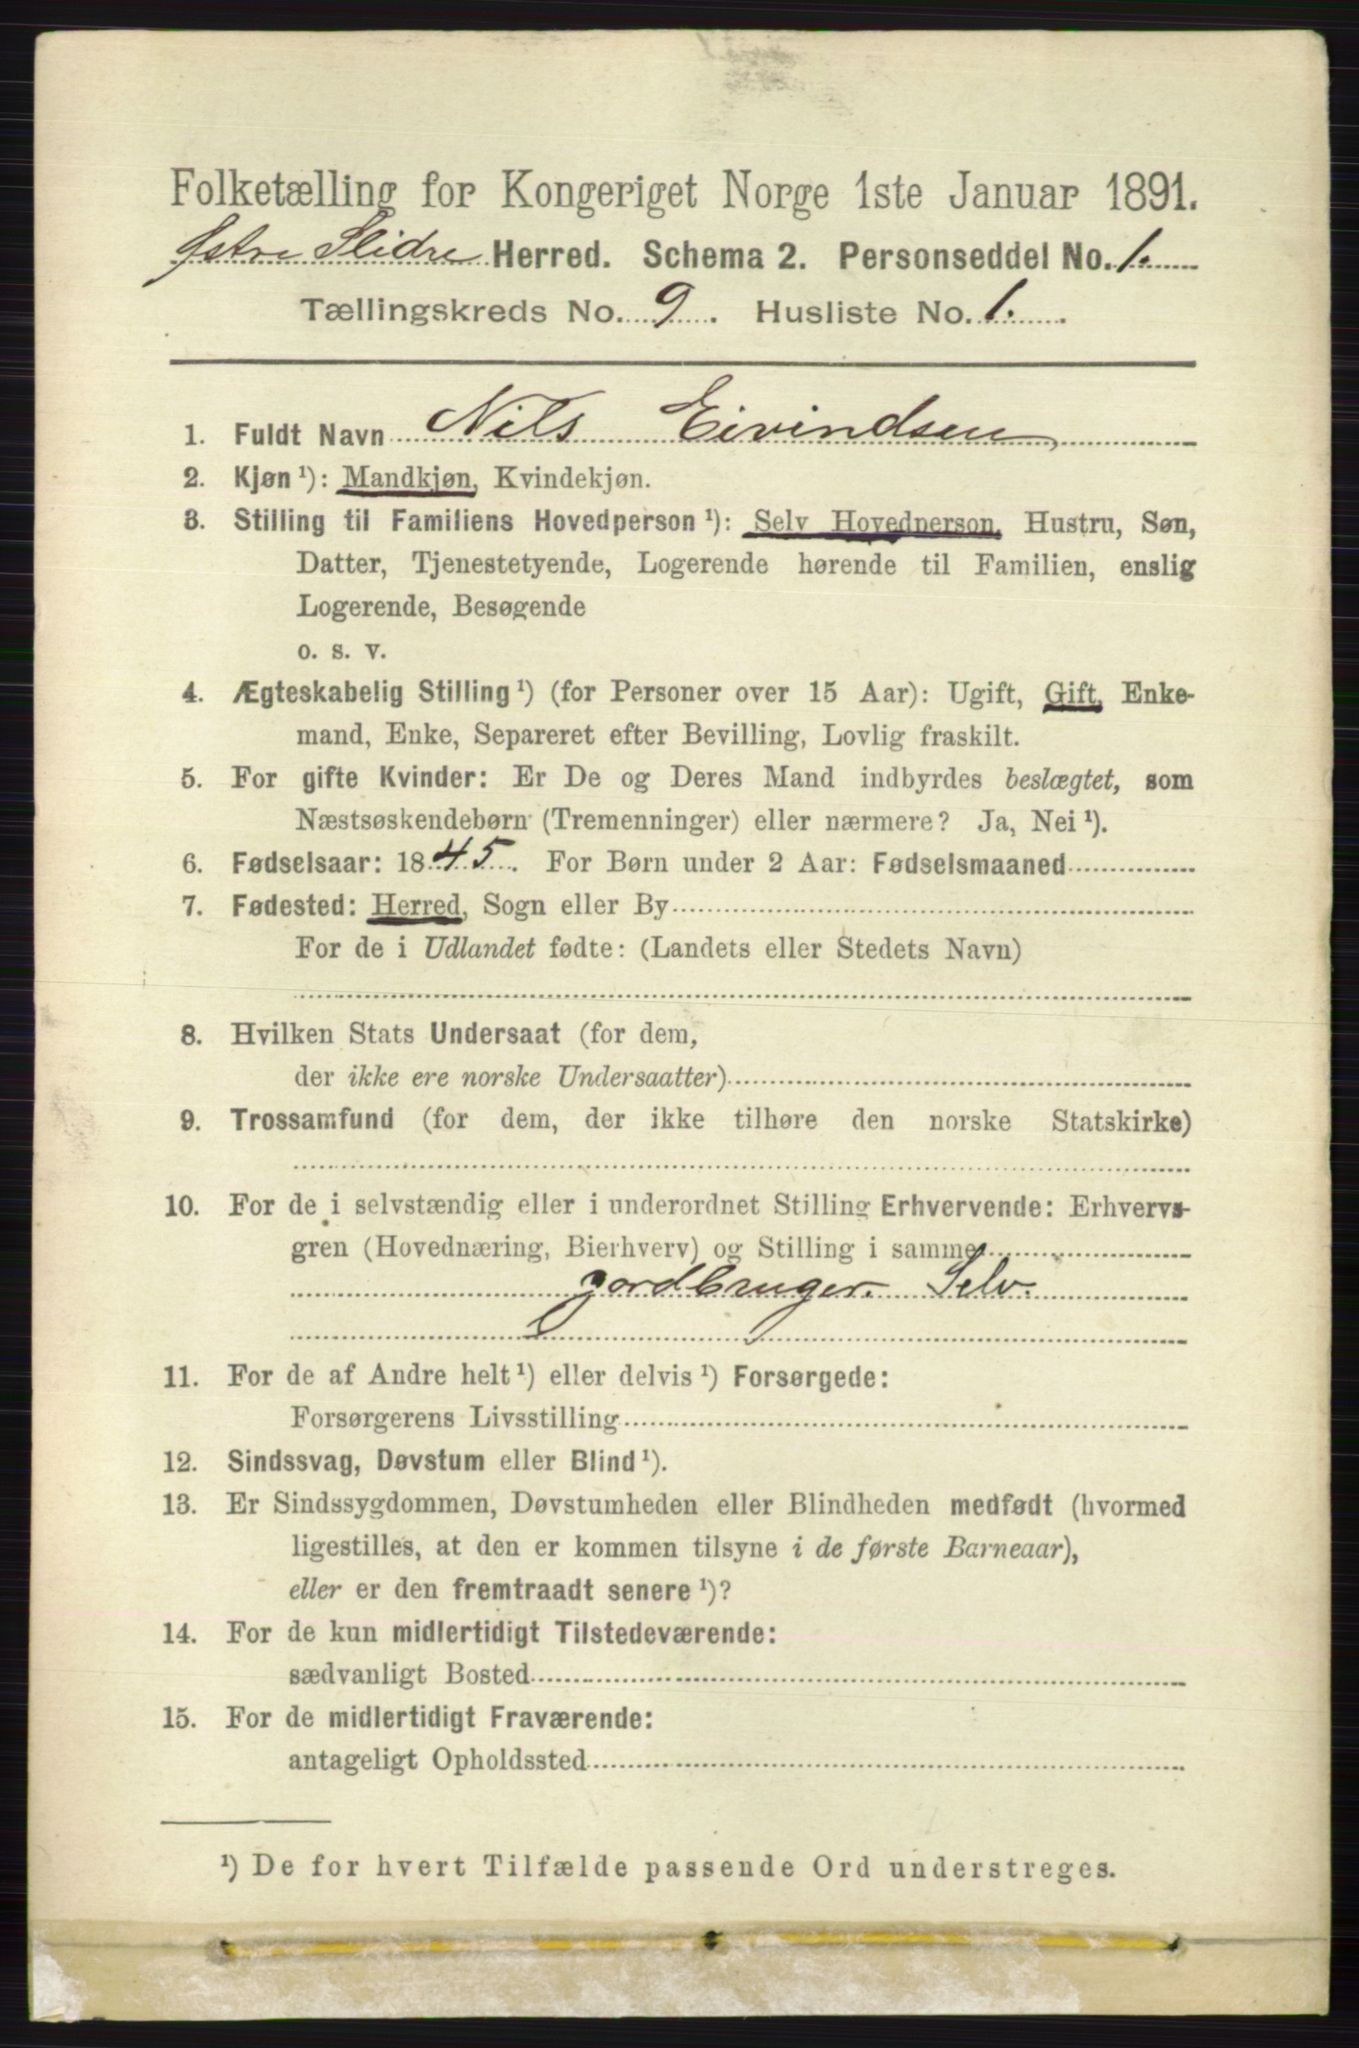 Folketælling for Kongeriget Norge 1ste Januar 1891.
Østre Slidre Herred. Schema 2. Personseddel No. 1.
Tællingskreds No. 9. Husliste No. 1.
1. Fuldt Navn Nils Eivindsen
2. Kjøn ¹): Mandkjøn, Kvindekjøn.
3. Stilling til Familiens Hovedperson ¹): Selv Hovedperson, Hustru, Søn,
Datter, Tjenestetyende, Logerende hørende til Familien, enslig
Logerende, Besøgende
o. s. v.
4. Ægteskabelig Stilling ¹) (for Personer over 15 Aar): Ugift, Gift, Enke-
mand, Enke, Separeret efter Bevilling, Lovlig fraskilt.
5. For gifte Kvinder: Er De og Deres Mand indbyrdes beslægtet, som
Næstsøskendebørn (Tremenninger) eller nærmere? Ja, Nei ¹).
6. Fødselsaar: 1845. For Børn under 2 Aar: Fødselsmaaned
7. Fødested: Herred, Sogn eller By
For de i Udlandet fødte: (Landets eller Stedets Navn)
8. Hvilken Stats Undersaat (for dem,
der ikke ere norske Undersaatter)
9. Trossamfund (for dem, der ikke tilhøre den norske Statskirke)
10. For de i selvstændig eller i underordnet Stilling Erhvervende: Erhvervs-
gren (Hovednæring, Bierhverv) og Stilling i samme
Jordbruger. Selv.
11. For de af Andre helt ¹) eller delvis ¹) Forsørgede:
Forsørgerens Livsstilling
12. Sindssvag, Døvstum eller Blind ¹).
13. Er Sindssygdommen, Døvstumheden eller Blindheden medfødt (hvormed
ligestilles, at den er kommen tilsyne i de første Barneaar),
eller er den fremtraadt senere ¹)?
14. For de kun midlertidigt Tilstedeværende:
sædvanligt Bosted
15. For de midlertidigt Fraværende:
antageligt Opholdssted
¹) De for hvert Tilfælde passende Ord understreges.